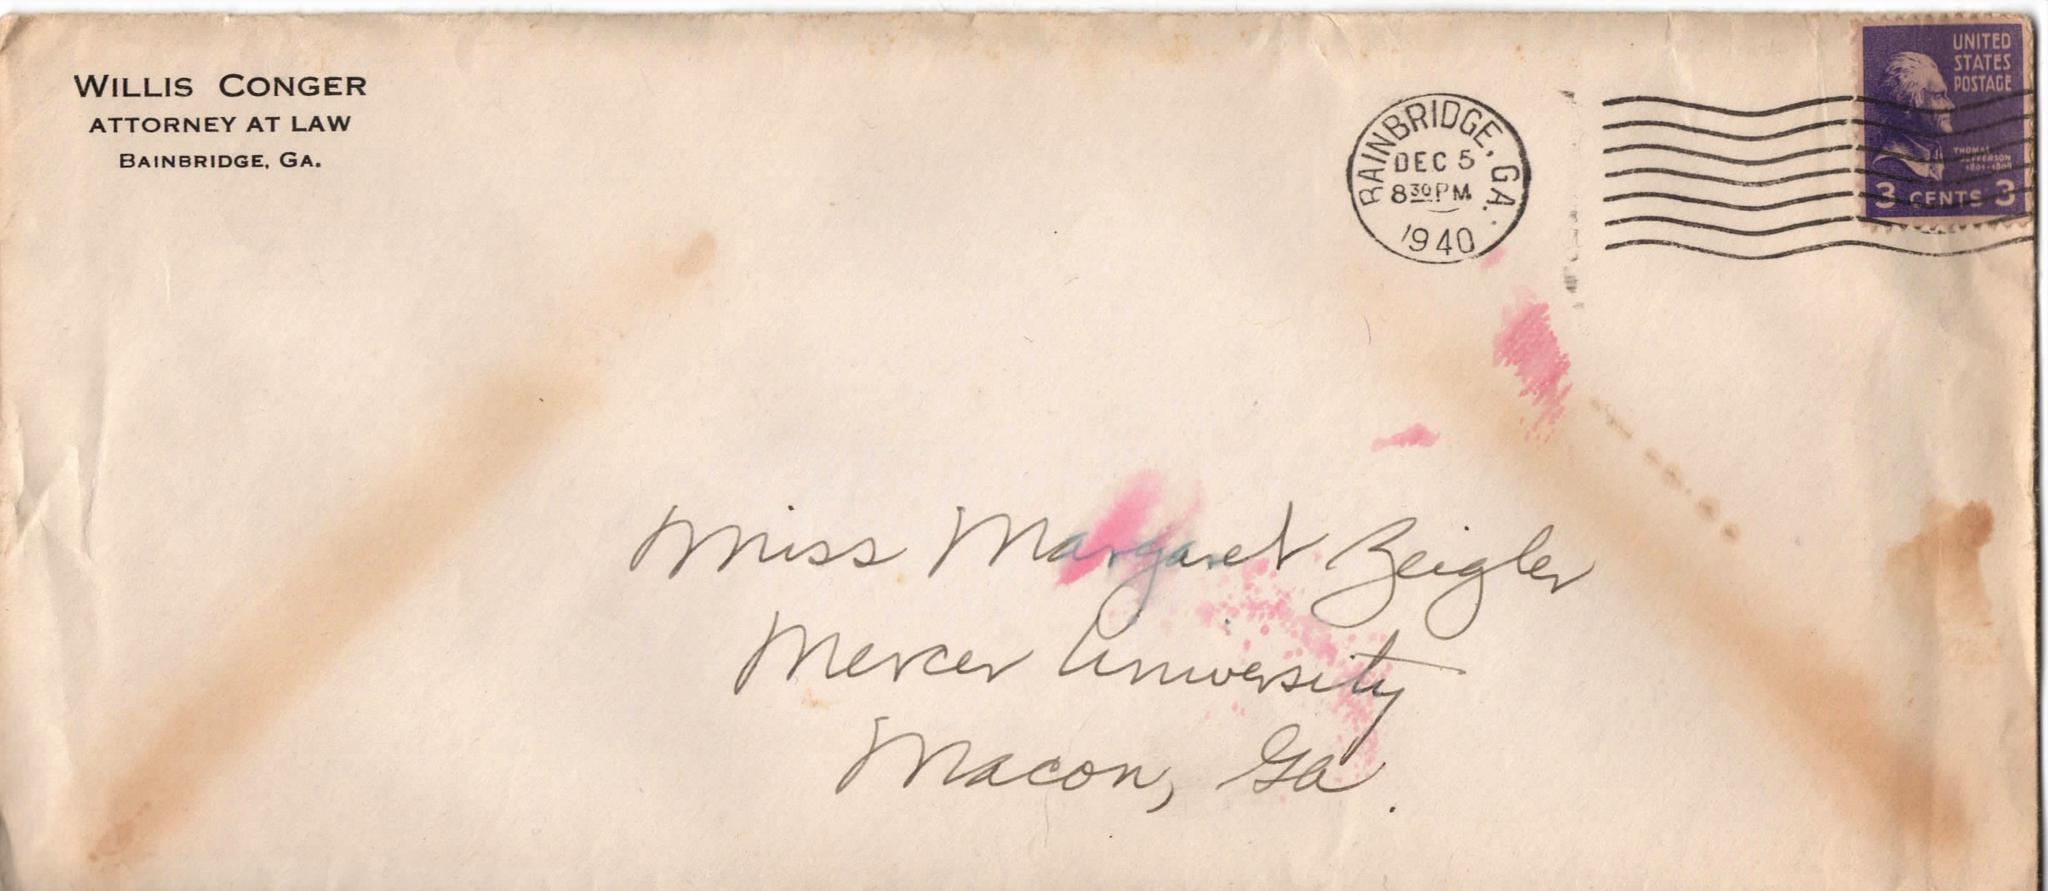 WILLIS CONGER
ATTORNEY AT LAW
BAINBRIDGE, GA.
BAINBRIDGE, GA.
DEC 5
8 30 PM
1940
UNITED
STATES
POSTAGE
THOMAS
JEFFERSON
1801-1809
3 CENTS 3
Miss Margaret Zeigler
Mercer University
Macon, Ga.